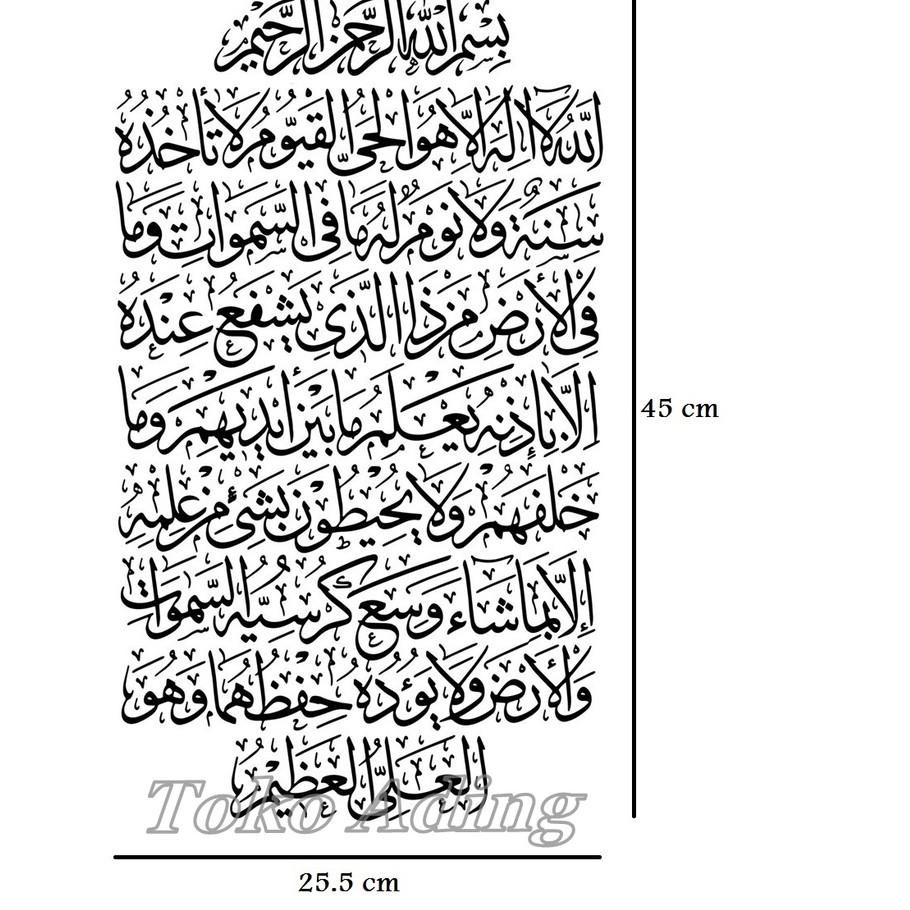 بسم الله الرحمن الرحيم
الله لا إله إلا هو الحي القيوم لا تأخذه
سنة ولا نوم له ما في السموات وما
في الأرض من ذا الذي يشفع عنده
إلا بإذنه يعلم ما بين أيديهم وما
خلفهم ولا يحيطون بشيء من علمه
إلا بما شاء وسع كرسيه السموات
والأرض ولا يؤده حفظهما وهو
العلي العظيم
Toko Ading
45 cm
25.5 cm